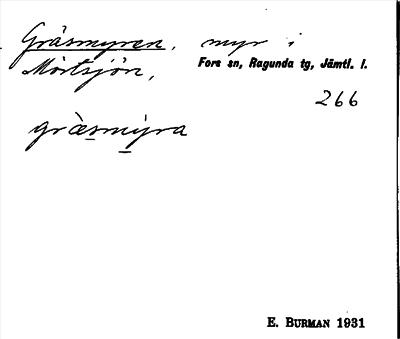 Gräsmyren, myr i
Mörtsjön, Fors sn, Ragunda tg, Jämtl. l.
266
grὰsmýra
E. BURMAN 1931